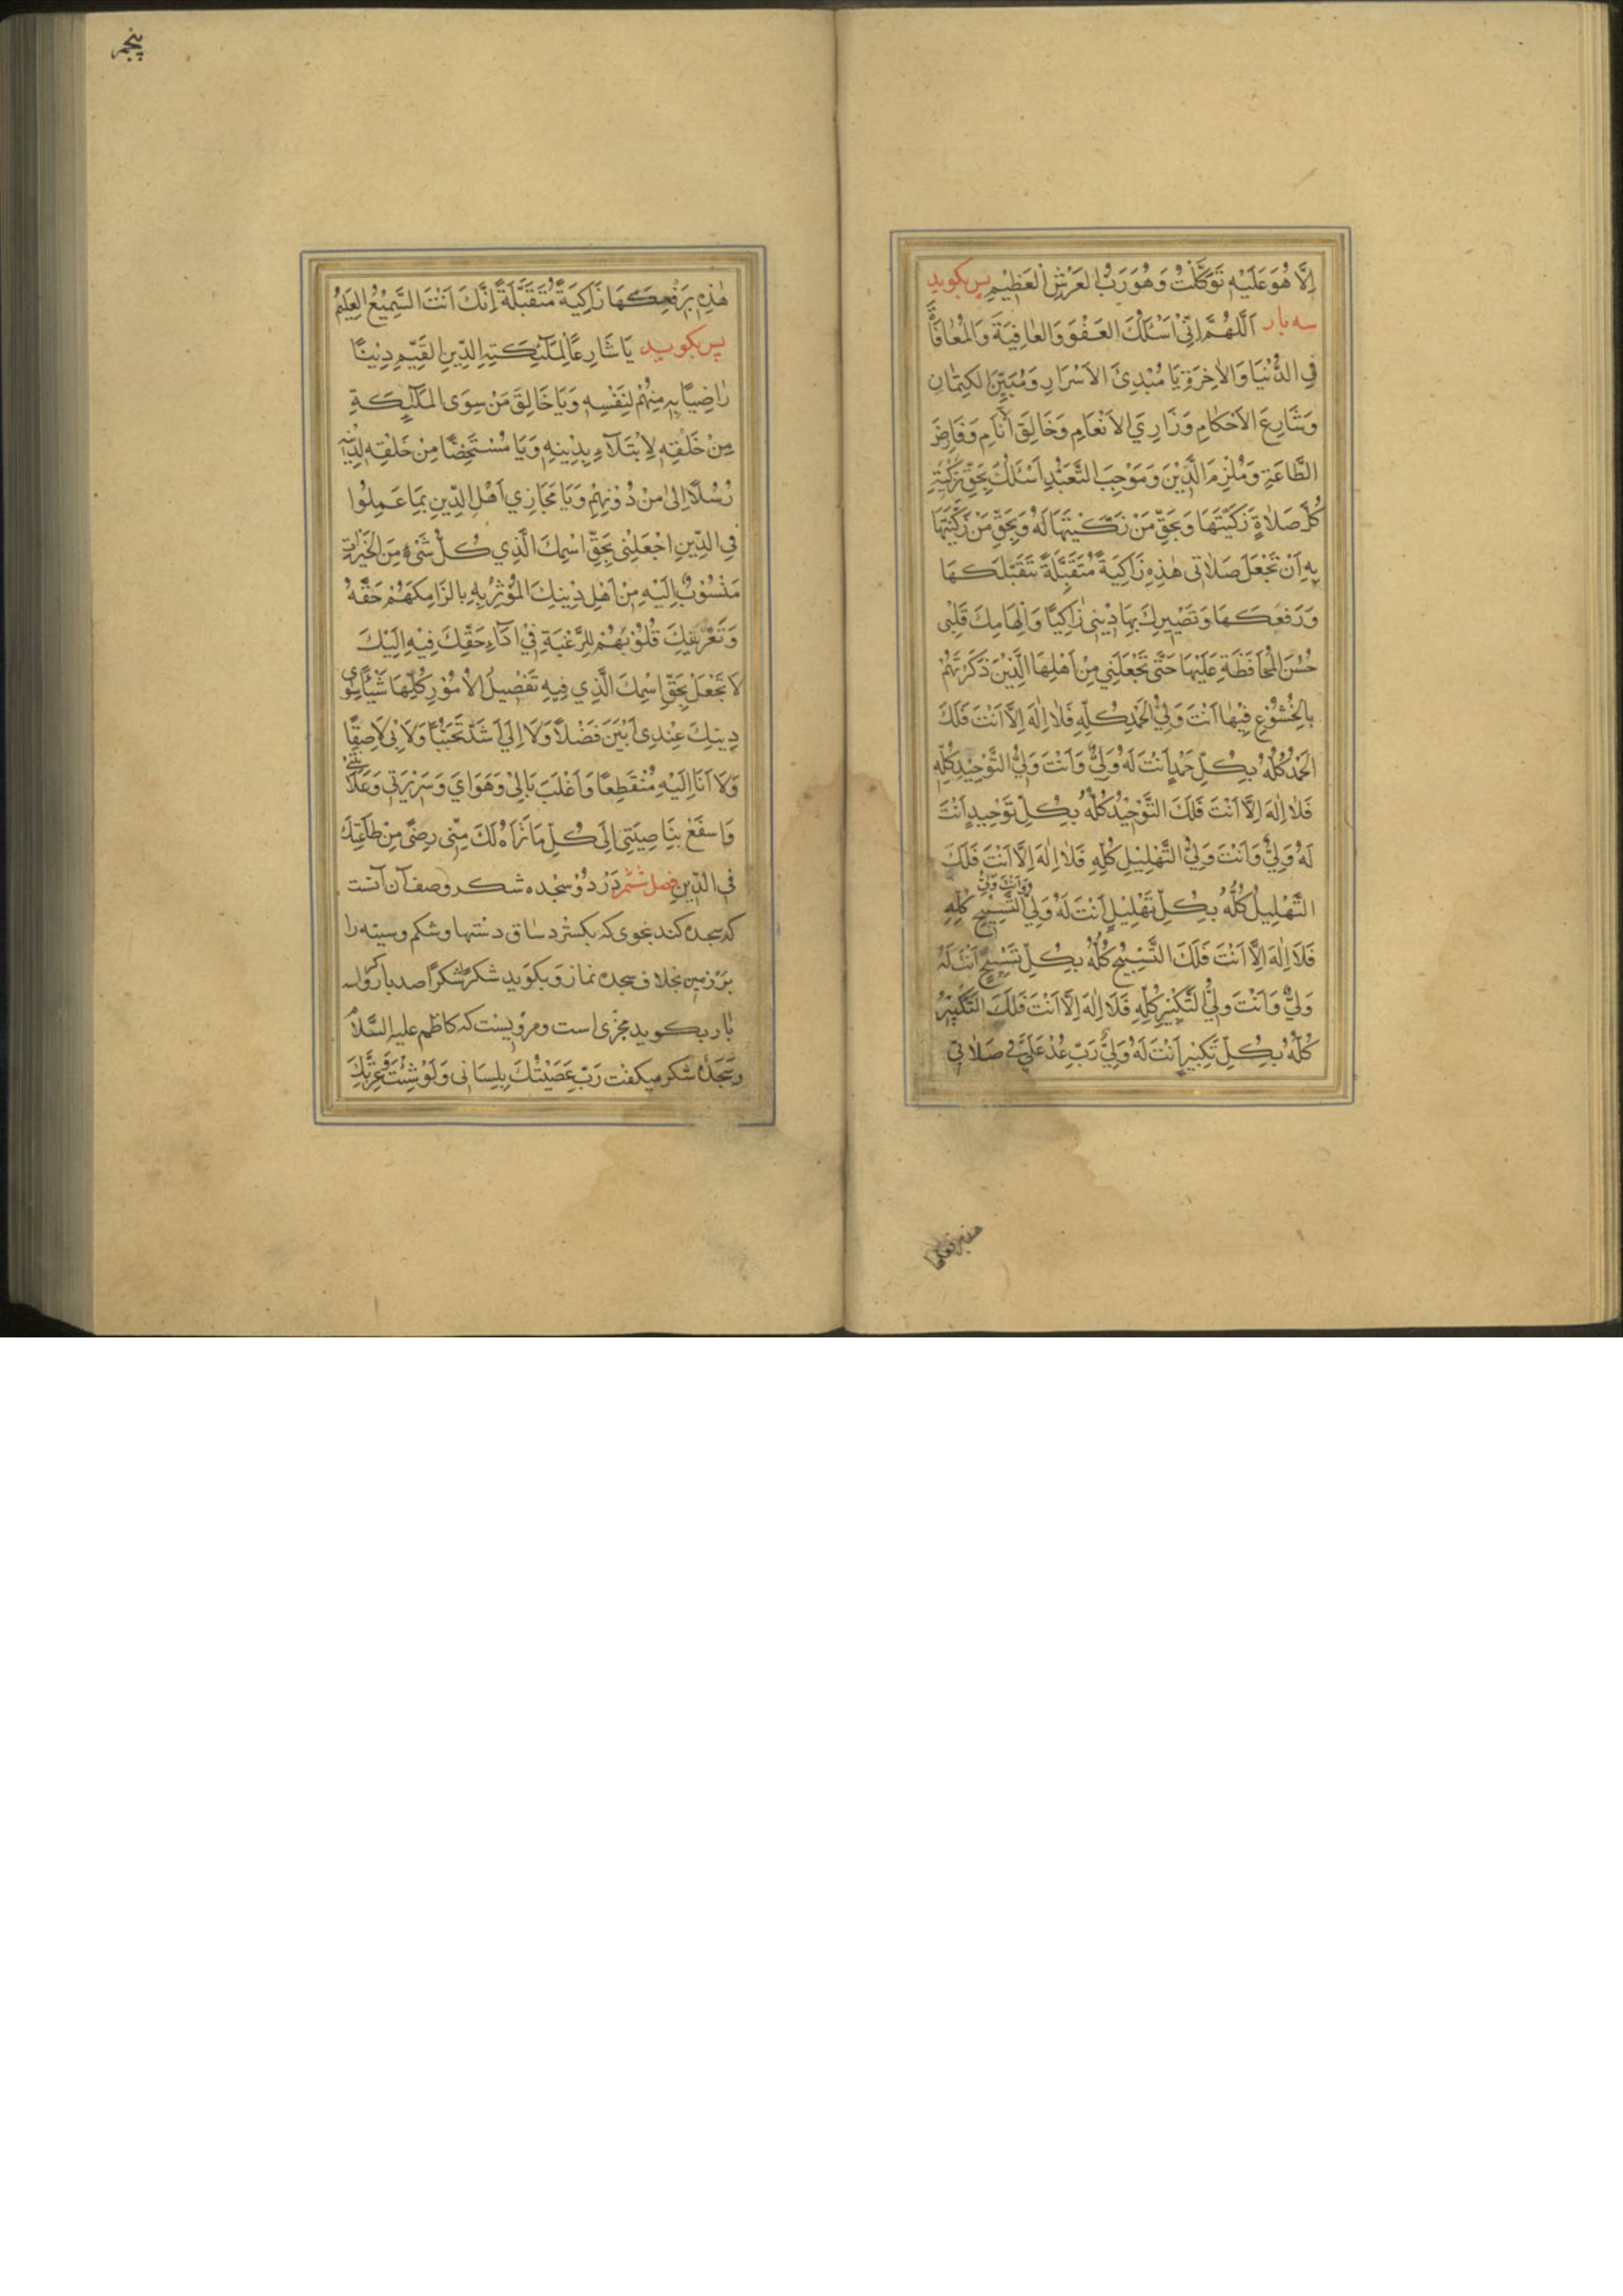 اِلَّا هُوَ عَلَيْهِ تَوَكَّلْتُ وَهُوَ رَبُّ العَرْشِ العَظِيْمِ پس بكويد
سه بار اَللّهُمَّ اِنّي اَسْئَلُكَ العَفْوَ وَالعافِيَةَ وَالمُعافاةَ
فِي الدُّنْيَا وَالاٰخِرَةِ يَا مُبْدِئَ الاَسْرَارِ وَمُبَيِّنَ الكِتْمَانِ
وَشَارِعَ الاَحْكَامِ وَذَارِيَ الاَنْعَامِ وَخَالِقَ اَنَامِ وَفَارِضَ
الطَّاعَةِ وَمُلْزِمَ الدِّيْنِ وَمَوْجِبَ التَّعَبُّدِ اَسْئَلُكَ بِحَقِّ تَزْكِيَةِ
كُلِّ صَلاٰةٍ زَكَّيْتَهَا وَبِحَقِّ مَنْ زَكَّيْتَهَا لَهُ وَبِحَقِّ مَنْ زَكَّيْتَهَا
بِهِ اَنْ تَجْعَلَ صَلاٰتي هٰذِهِ زَاكِيَةً مُتَقَبَّلَةً بِتَقَبُّلِكَهَا
وَرَفْعِكَهَا وَتَصْيِيرِكَ بِهَا دِيْنِي زَاكِيًا وَاِلْهَامِكَ قَلْبِي
حُسْنَ المُحَافَظَةِ عَلَيْهَا حَتَّى تَجْعَلَنِي مِنْ اَهْلِهَا الَّذِيْنَ ذَكَرْتَهُمْ
بِالخُشُوْعِ فِيْهَا اَنْتَ وَلِيُّ الحَمْدِ كُلِّهِ فَلاٰ اِلٰهَ اِلَّا اَنْتَ فَلَكَ
الحَمْدُ كُلُّهُ بِكُلِّ حَمْدٍ اَنْتَ لَهُ وَلِيٌّ وَاَنْتَ وَلِيُّ التَّوْحِيْدِ كُلِّهِ
فَلاٰ اِلٰهَ اِلَّا اَنْتَ فَلَكَ التَّوْحِيْدُ كُلُّهُ بِكُلِّ تَوْحِيدٍ اَنْتَ
لَهُ وَلِيٌّ وَاَنْتَ وَلِيُّ التَّهْلِيْلِ كُلِّهِ فَلاٰ اِلٰهَ اِلَّا اَنْتَ فَلَكَ
التَّهْلِيلُ كُلُّهُ بِكُلِّ تَهْلِيْلٍ اَنْتَ لَهُ وَلِيٌّ وَاَنْتَ وَلِيُّ التَّسْبِيْحِ كُلِّهِ
فَلاَ اِلٰهَ اِلَّا اَنْتَ فَلَكَ التَّسْبِيْحُ كُلُّهُ بِكُلِّ تَسْبِيْحٍ اَنْتَ لَهُ
وَلِيٌّ وَاَنْتَ وَلِيُّ التَّكْبِيْرِ كُلِّهِ فَلاَ اِلٰهَ اِلَّا اَنْتَ فَلَكَ التَّكْبِيْرُ
كُلُّهُ بِكُلِّ تَكْبِيْرٍ اَنْتَ لَهُ وَلِيٌّ رَبِّ عُدْ عَلَيَّ فِي صَلاٰتِي
پنجم
هٰذِهِ بِرَفْعِكَهَا زَاكِيَةً مُتَقَبَّلَةً اِنَّكَ اَنْتَ السَّمِيْعُ العَلِيْمُ
پس بكويد يَا شَارِعًا لِمَلآئِكَتِهِ الدِّيْنِ القَيِّمِ دِيْنًا
رَاضِيًا بِهِ مِنْهُمْ لِنَفْسِهِ وَيَا خَالِقَ مَنْ سِوَى المَلآئِكَةِ
مِنْ خَلْقِهِ لِاِبْتِلآءِ بِدِيْنِهِ وَيَا مُسْتَخِصًّا مِنْ خَلْقِهِ لِدِيْنِهِ
رُسُلًا اِلىٰ مَنْ دُوْنِهِمْ وَيَا مُجَازِي اَهْلِ الدِّيْنِ بِمَا عَمِلُوْا
فِي الدِّيْنِ اجْعَلْنِي بِحَقِّ اسْمِكَ الَّذِي كُلُّ شَيْءٍ مِنَ الخَيْرَاتِ
مَنْسُوْبٌ اِلَيْهِ مِنْ اَهْلِ دِيْنِكَ المُؤْثِرِ بِهِ بِالزَامِكَهُمْ حَقَّهُ
وَتَفْرِيغِكَ قُلُوْبَهُمْ لِلرَّغْبَةِ فِيْ اَدَاءِ حَقِّكَ فِيْهِ اِلَيْكَ
لاَ تَجْعَلْ بِحَقِّ اسْمِكَ الَّذِي فِيهِ تَفْصِيلُ الاُمُوْرِ كُلِّهَا شَيْئًا سِوَى
دِيْنِكَ عِنْدِي اَبْيَنَ فَضْلًا وَلاَ اِلَيَّ اَشَدَّ تَحَبُّبًا وَلاَ بِي لاَصِقًا
وَلاَ اَنَا اِلَيْهِ مُنْقَطِعًا وَاغْلِبْ بَالِيْ وَهَوَايَ وَسَرِيْرَتِي وَعَلاَنِيَتِي
وَاسْفَعْ بِنَاصِيَتِي اِلَى كُلِّ مَا تَرَاهُ لَكَ مِنِّي رِضًى مِنْ طَاعَتِكَ
فِي الدِّيْنِ فصل ششم در دو سجده شكر وصف آن آنست
كه سجده كند بنحوى كه بكستراد ساق دستها وشكم وسينه را
بر زمين بخلاف سجده نماز وبكويد شكرًا شكرًا صد بار واكر سه
بار بكويد مجزى است ومرويست كه كاظم عليه السَّلام
در سجدۀ شكر ميكفت رَبِّ عَصَيْتُكَ بِلِسَانِي وَلَوْ شِئْتَ وَعِزَّتِكَ